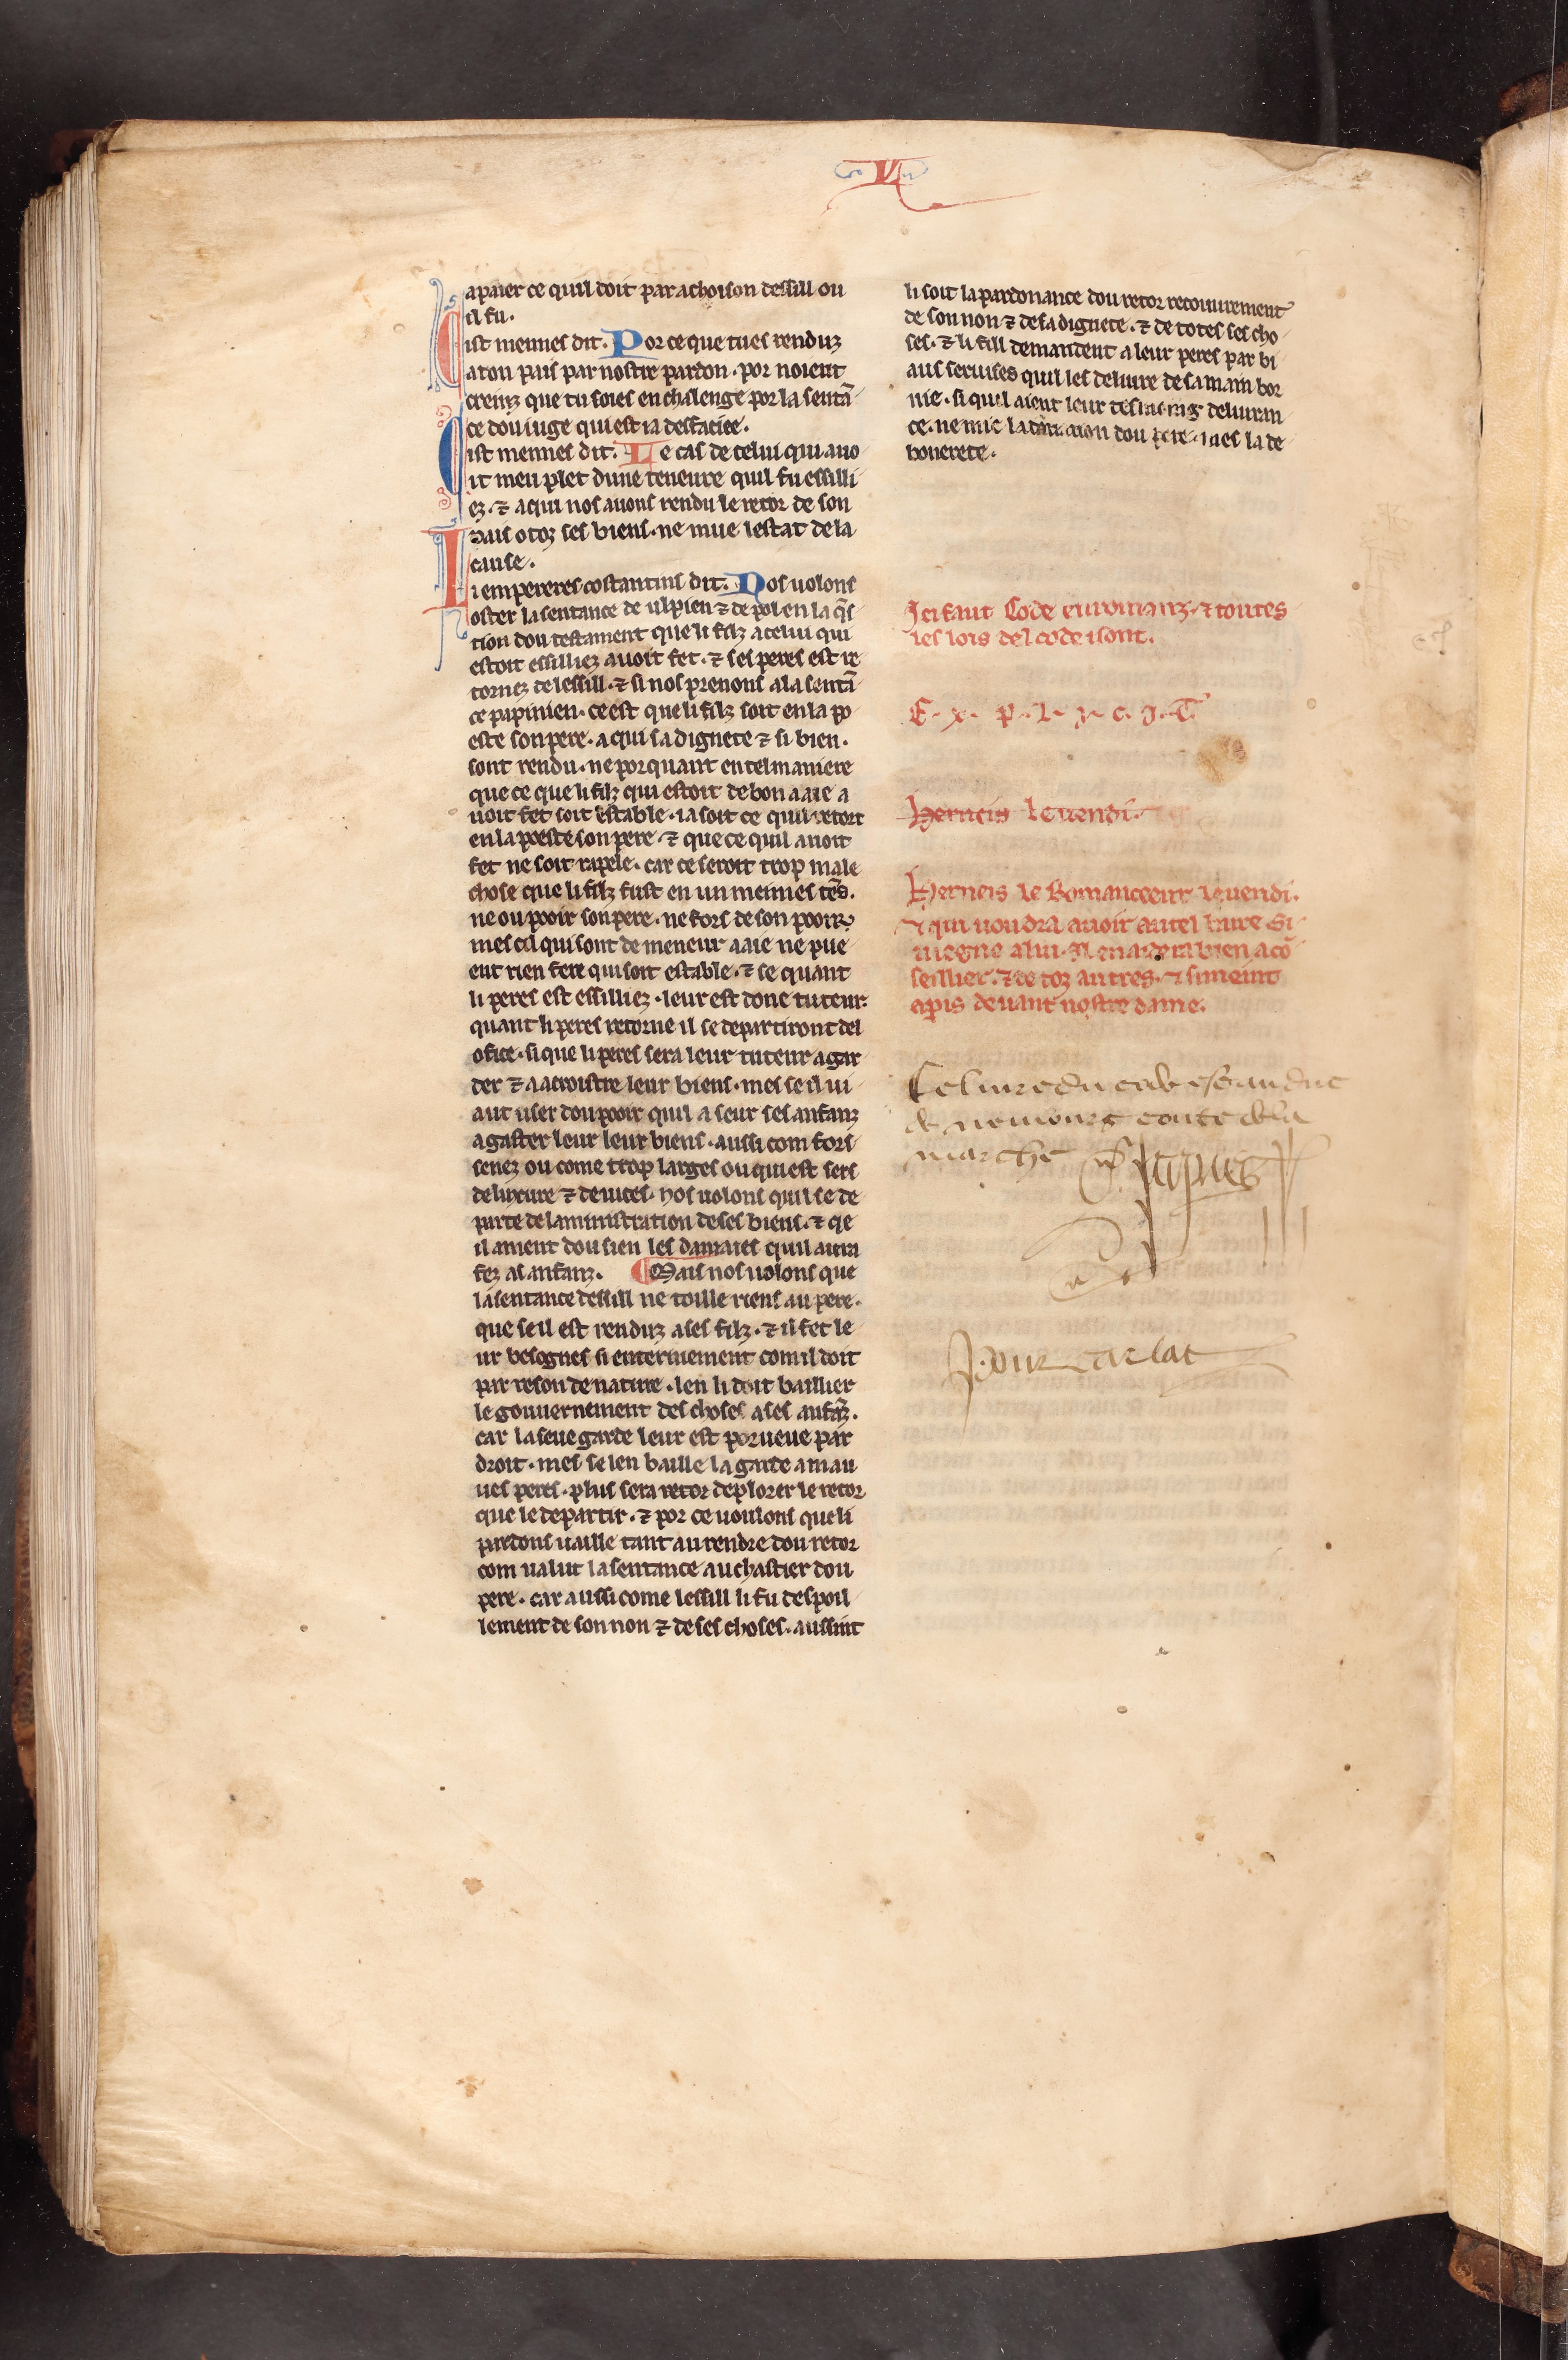 VI
a paier ce quil doit par achoison dessill ou
il fu.
Cist meimes dit. Por ce que tu es renduz
a ton pais par nostre pardon. por noient
creinz que tu soies en chalenge por la sentā
ce dou iuge qui est ia desfaciee.
Cist meimes dit. Le cas de celui qui auo
it meu plet dune teneure quil fu essilli
ez. ⁊ a qui nos auons rendu le retor de son
pais o toz ses biens. ne mue lestat de la
cause.
Li empereres costantins dit. Nos uolons
oster la sentance de ulpien ⁊ de pol en la q̄s
tion dou testament que li filz a celui qui
estoit essilliez auoit fet. ⁊ ses peres est re
tornez de lessill. ⁊ si nos prenons a la sentā
ce papinien. ce est que li filz soit en la po
este son pere. a qui sa dignete ⁊ si bien.
sont rendu. ne por quant en tel maniere
que ce que li filz qui estoit de bon aaie a
uoit fet soit estable. ia soit ce quil retort
en la poeste son pere. ⁊ que ce quil auoit
fet ne soit rapele. car ce seroit trop male
chose que li filz fust en un meimes tēs.
ne ou pooir son pere. ne fors de son pooir.
mes cil qui sont de meneur aaie ne pue
ent rien fere qui soit estable. ⁊ se quant
li peres est essilliez. leur est done tuteur.
quant li peres retorne il se departiront del
ofice. si que li peres sera leur tuteur a gar
der ⁊ a acroistre leur biens. mes se il ui
aut user dou pooir quil a seur ses anfanz
a gaster leur leur biens. aussi com fors
senez ou come trop larges ou qui est sers
de luxure ⁊ de uices. nos uolons quil se de
parte de laministration de ses biens. ⁊ qe
il ament dou sien les damaies quil aura
fez as anfanz. Mais nos uolons que
la sentance dessill ne toille riens au pere.
que se il est renduz a ses filz. ⁊ il fet le
ur besognes si enterinement com il doit
par reson de nature. len li doit baillier
le gouuernement des choses a ses anfāz.
car la seue garde leur est porueue par
droit. mes se len baille la garde a mau
ues peres. plus sera retor de plorer le retor
que le departir. ⁊ por ce uoulons que li
pardons uaille tant au rendre dou retor
com ualut la sentance au chastier dou
pere. car aussi come lessill li fu despoil
lement de son non ⁊ de ses choses. aussint
li soit la pardonance dou retor recouurement
de son non ⁊ de sa dignete. ⁊ de totes ses cho
ses. ⁊ li fill demandent a leur peres par bi
aus seruises quil les deliure de sa main bor
nie. si quil aient leur desirring deliuran
ce. ne mie la dou pere. mes la de
bonerete.
Ici faut Code en romanz. ⁊ toutes
les lois del code i sont.
E. x. p. l. i. c. i. T.
Herneis le uendi.
Herneis le Romanceeur le uendi.
⁊ qui uoudra auoir autel liure. Si
uiegne a lui. Il en aidera bien a cō
seillier. ⁊ de toz autres. ⁊ si meint
a paris deuant nostre dame.
Ce liure du code est au duc
de nemours conte de la
marche Jaques
Pour carlat